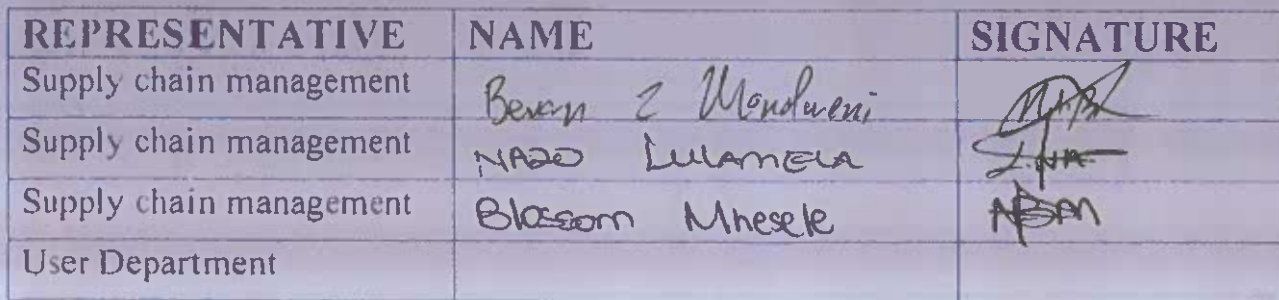 REPRESENTATIVE NAME SIGNATURE
Supply chain management Bevan Z Mandweni
Supply chain management NAZO LULAMELA
Supply chain management Blossom Mhesele
User Department